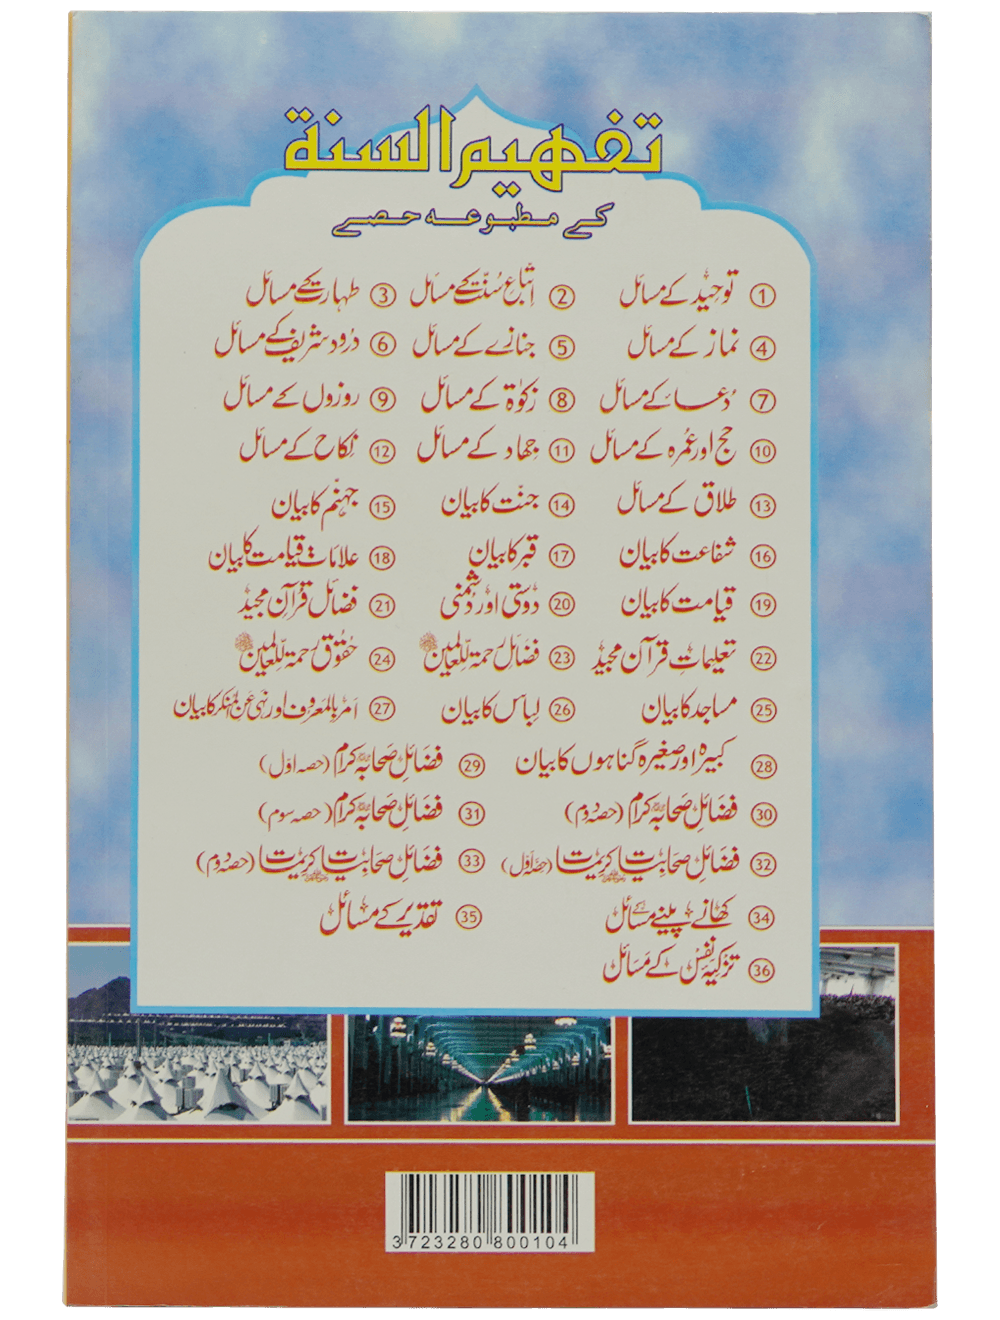 تفہیم السنۃ
کے مطبوعہ حصے
1 توحید کے مسائل 2 اتباعِ سُنّت کے مسائل 3 طہارت کے مسائل
4 نماز کے مسائل 5 جنازے کے مسائل 6 درود شریف کے مسائل
7 دُعا کے مسائل 8 زکوٰۃ کے مسائل 9 روزوں کے مسائل
10 حج اور عُمرہ کے مسائل 11 جہاد کے مسائل 12 نکاح کے مسائل
13 طلاق کے مسائل 14 جنّت کا بیان 15 جہنّم کا بیان
16 شفاعت کا بیان 17 قبر کا بیان 18 علاماتِ قیامت کا بیان
19 قیامت کا بیان 20 دوستی اور دشمنی 21 فضائلِ قرآن مجید
22 تعلیماتِ قرآن مجید 23 فضائلِ رحمۃ للعالمین ﷺ 24 حقوقِ رحمۃ للعالمین ﷺ
25 مساجد کا بیان 26 لباس کا بیان 27 امر بالمعروف اور نہی عن المنکر کا بیان
28 کبیرہ اور صغیرہ گناہوں کا بیان 29 فضائلِ صحابہ کرام (حصہ اوّل)
30 فضائلِ صحابہ کرام (حصہ دوم) 31 فضائلِ صحابہ کرام (حصہ سوم)
32 فضائلِ صحابیات کریمات (حصہ اوّل) 33 فضائلِ صحابیات کریمات (حصہ دوم)
34 کھانے پینے کے مسائل 35 تقدیر کے مسائل
36 تزکیۂ نفس کے مسائل
3723280 800104